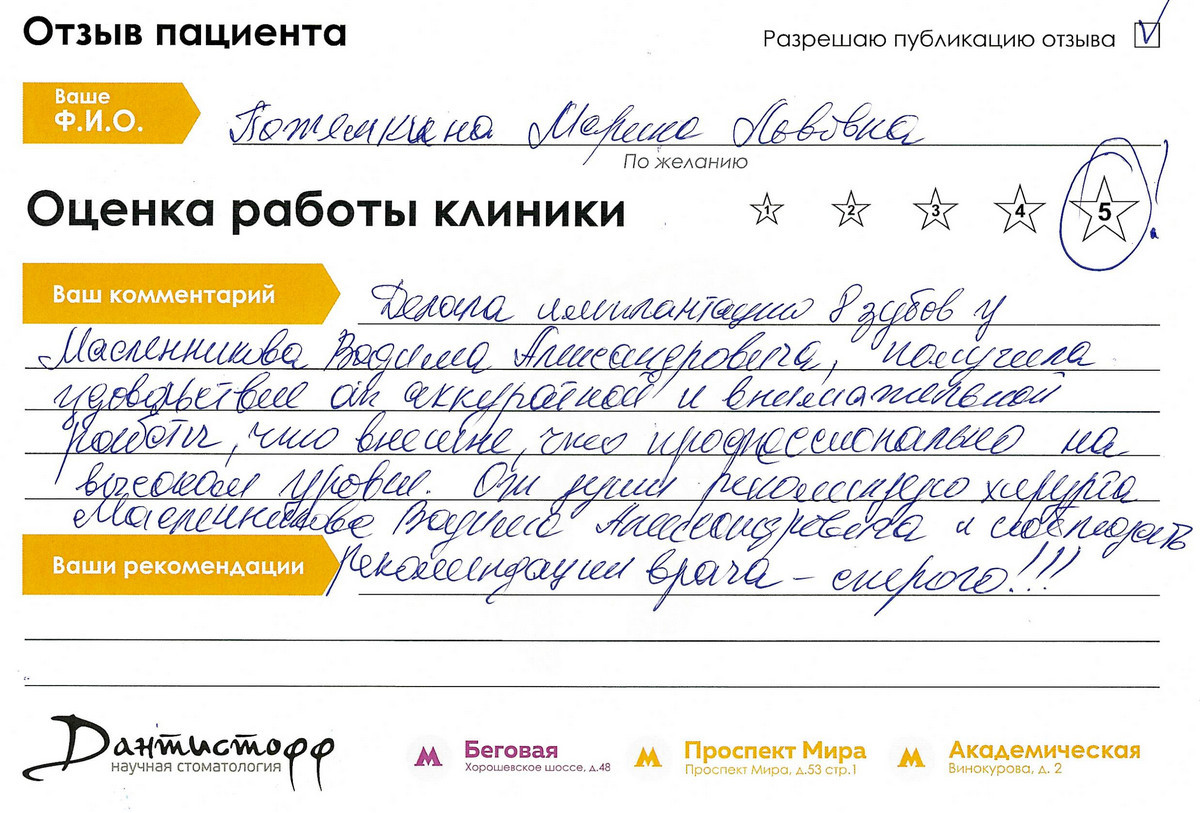 Отзыв пациента
Разрешаю публикацию отзыва
Ваше
Ф.И.О.
Потёмкина Марина Львовна
По желанию
Оценка работы клиники
1 2 3 4 5 !
Ваш комментарий
Делала имплантацию 8 зубов у
Масленникова Вадима Александровича, получила
удовольствие от аккуратной и внимательной
работы, что внешне, что профессионально на
высоком уровне. От души рекомендую хирурга
Масленникова Вадима Александровича и соблюдать
Ваши рекомендации
рекомендации врача – строго!!!
Дантистофф
научная стоматология
Беговая
Хорошевское шоссе, д.48
Проспект Мира
Проспект Мира, д.53 стр.1
Академическая
Винокурова, д. 2